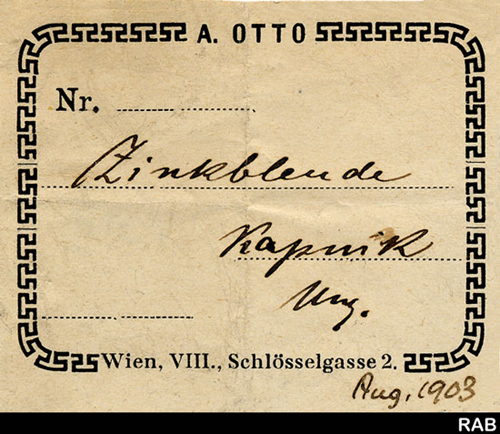 A. OTTO
Nr.
Zinkblende
Kapnik
Ung.
Wien, VIII., Schlösselgasse 2.
Aug. 1903
RAB